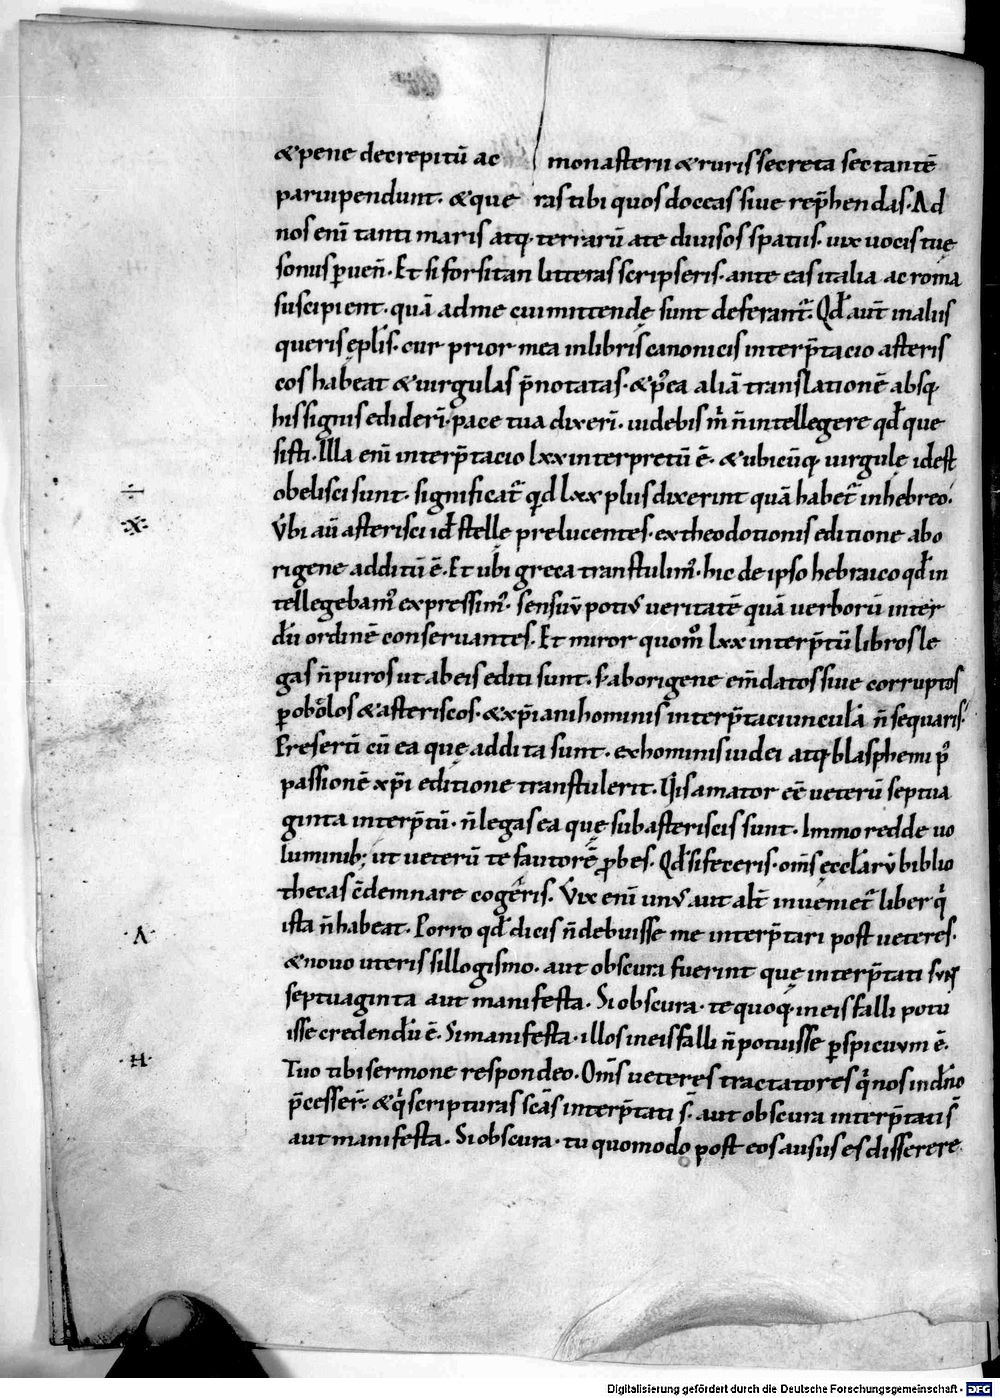 &pene decrepitū ac monasterii &ruris secreta sectantē
paruipendunt. &que ras tibi quos doceas siue rep̄hendas. Ad
nos enī tanti maris atq; terrarū a te diuisos spatiis. uix uocis tuę
sonus ꝑueñ. Et si forsitan litteras scripseris. ante eas italia ac roma
suscipient. quā ad me cui mittendę sunt deferant̄. Qđ aut̄ in aliis
queris epłis. cur prior mea in libris canonicis interp̄tacio asteris
cos habeat &uirgulas p̄notatas. &p̊ea aliā translationē absq;
his signis ediderī. pace tua dixerī. uidebis m̄ ñ intellegere qđ que
sisti. Illa enī interp̄tacio lxx interpretū ē. &ubicūq; uirgulę id est
obelisci sunt. significat̄ qđ lxx plus dixerint quā habet̄ in hebreo.
Vbi aū asterisci iđ stellę prelucentes. ex theodotionis editione abo
rigene additū ē. Et ubi greca transtulim̾. hic de ipso hebraico qđ in
tellegebam̾ expressim̾. sensuū potiꝰ ueritatē quā uerborū inter
dū ordinē conseruantes. Et miror quom̊ lxx interp̄tū libros le
gas ñ puros ut ab eis editi sunt. s; ab origene em̄datos siue corruptos
ꝑ obolos &asteriscos. &xp̄iani hominis interp̄taciunculā ñ sequaris.
Presertī cū ea quę addita sunt. ex hominis iudei atq; blasphemi p̊
passionē xp̄i editione transtulerit. Vis amator eē ueterū septua
ginta interp̄tū. ñ legas ea quę sub asteriscis sunt. Immo redde uo
luminib; ut ueterū te fautorē ꝓbes. Qđ si feceris. om̄s ęccłarū biblio
thecas c̄demnare cogeris. Vix enī unꝰ aut alt̄ inueniet̄ liber q̄
ista ñ habeat. Porro qđ dicis ñ debuisse me interp̄tari post ueteres.
&nouo uteris sillogismo. aut obscura fuerint quę interp̄tati sunt
septuaginta aut manifesta. Si obscura. te quoq; in eis falli potu
isse credendū ē. Si manifesta. illos in eis falli ñ potuisse ꝑspicuum ē.
Tuo tibi sermone respondeo. Om̄s ueteres tractatores q̄ nos in dn̄o
p̄cesser̄. &q̄ scripturas scās interp̄tati s̄. aut obscura interp̄tati s̄
aut manifesta. Si obscura. tu quomodo post eos ausus es disserere
÷
※
·Λ·
·H·
Digitalisierung gefördert durch die Deutsche Forschungsgemeinschaft - DFG